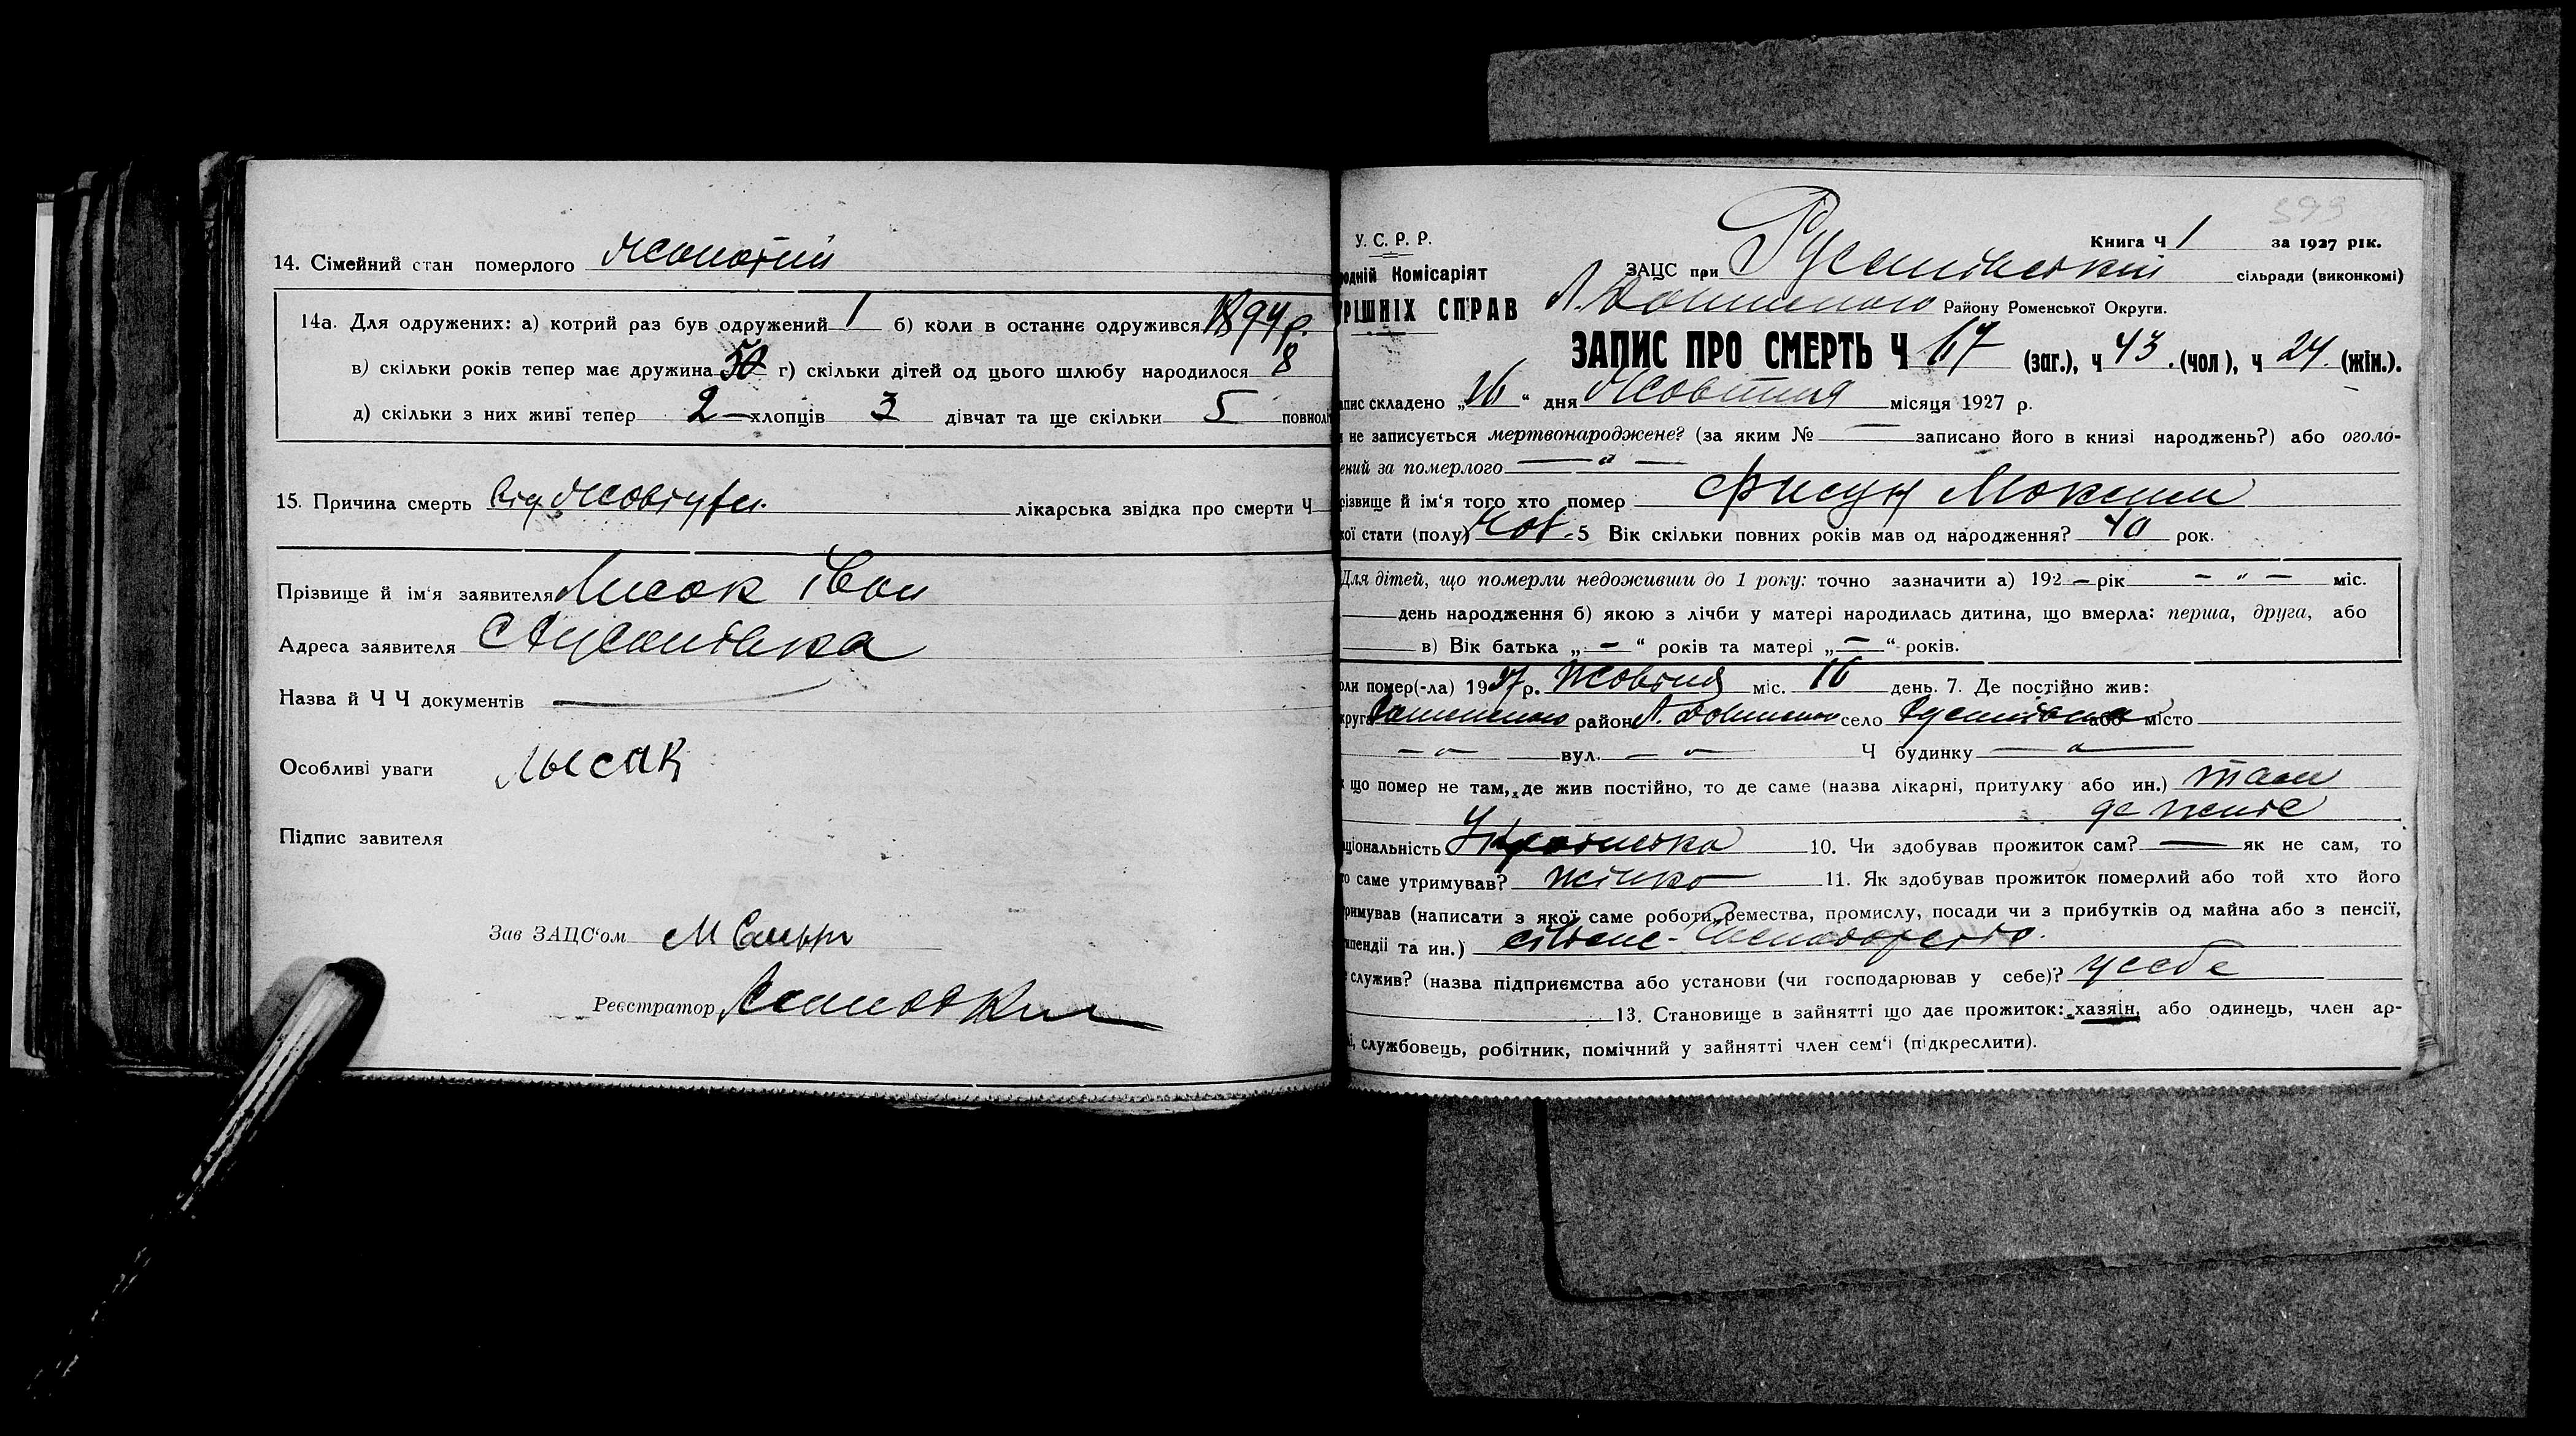 14. Сімейний стан померлого жонатий
14а. Для одружених: а) котрий раз був одружений 1 б) коли в останнє одружився 1894 р.
в) скільки років тепер має дружина 50 г) скільки дітей од цього шлюбу народилося 8
д) скільки з них живі тепер 2 – хлопців 3 дівчат та ще скільки 5 повнолі
15. Причина смерть від лікарська звідка про смерти Ч
Прізвище й ім‘я заявителя Лисак Іван
Адреса заявителя с Русанівка
Назва й Ч Ч документів —
Особливі уваги Лысак
Підпис завителя
Зав ЗАЦС‘ом М
Реєстратор
599
У. С. Р. Р.
Книга Ч 1 за 1927 рік.
одній Комісаріят
ЗАЦС при Русанівській сільради (виконкомі)
РІШНІХ СПРАВ
Л. Долинського Району Роменської Округи.
ЗАПИС ПРО СМЕРТЬ Ч 67 (заг.), ч 43 (чол), ч 24 (жін.).
апис складено „16“ дня Жовтня місяця 1927 р.
не записується мертвонароджене? (за яким № — записано його в книзі народжень?) або оголо-
ений за померлого — " —
різвище й ім‘я того хто помер Фисун Максим
кої стати (полу) чол. 5 Вік скільки повних років мав од народження? 70 рок.
Для дітей, що померли недоживши до 1 року: точно зазначити а) 192 – рік – " – міс.
день народження б) якою з лічби у матері народилась дитина, що вмерла: перша, друга, або
в) Вік батька „ – “ років та матері „ – “ років.
оли помер(-ла) 1927 р. Жовтня міс. 16 день. 7. Де постійно жив:
круга Роменського район Л. Долинськ село Русанівка або місто
– " – вул. – " – Ч будинку — " —
що помер не там, де жив постійно, то де саме (назва лікарні, притулку або ин.) там
де жив
ціональність Українська 10. Чи здобував прожиток сам? — як не сам, то
о саме утримував? жінка 11. Як здобував прожиток померлий або той хто його
римував (написати з якої саме роботи, ремества, промислу, посади чи з прибутків од майна або з пенсії,
ипендії та ин.) сільське господарство.
служив? (назва підприємства або установи (чи господарював у себе)? у себе
13. Становище в зайнятті що дає прожиток: хазяін, або одинець, член ар-
і, службовець, робітник, помічний у зайнятті член сем‘ї (підкреслити).